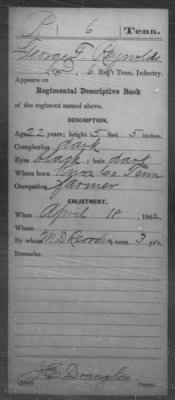 R 6 Tenn.
George F. Reynolds
6 Reg't Tenn. Infantry.
Appears on
Regimental Descriptive Book
of the regiment named above.
DESCRIPTION.
Age 22 years; height 5 feet 5 inches.
Complexion dark
Eyes black; hair dark
Where born Knox Co. Tenn
Occupation farmer
ENLISTMENT.
When April 18, 1862.
Where
By whom M D; term 3 y'rs.
Remarks:
J E Douglas
Copyist.